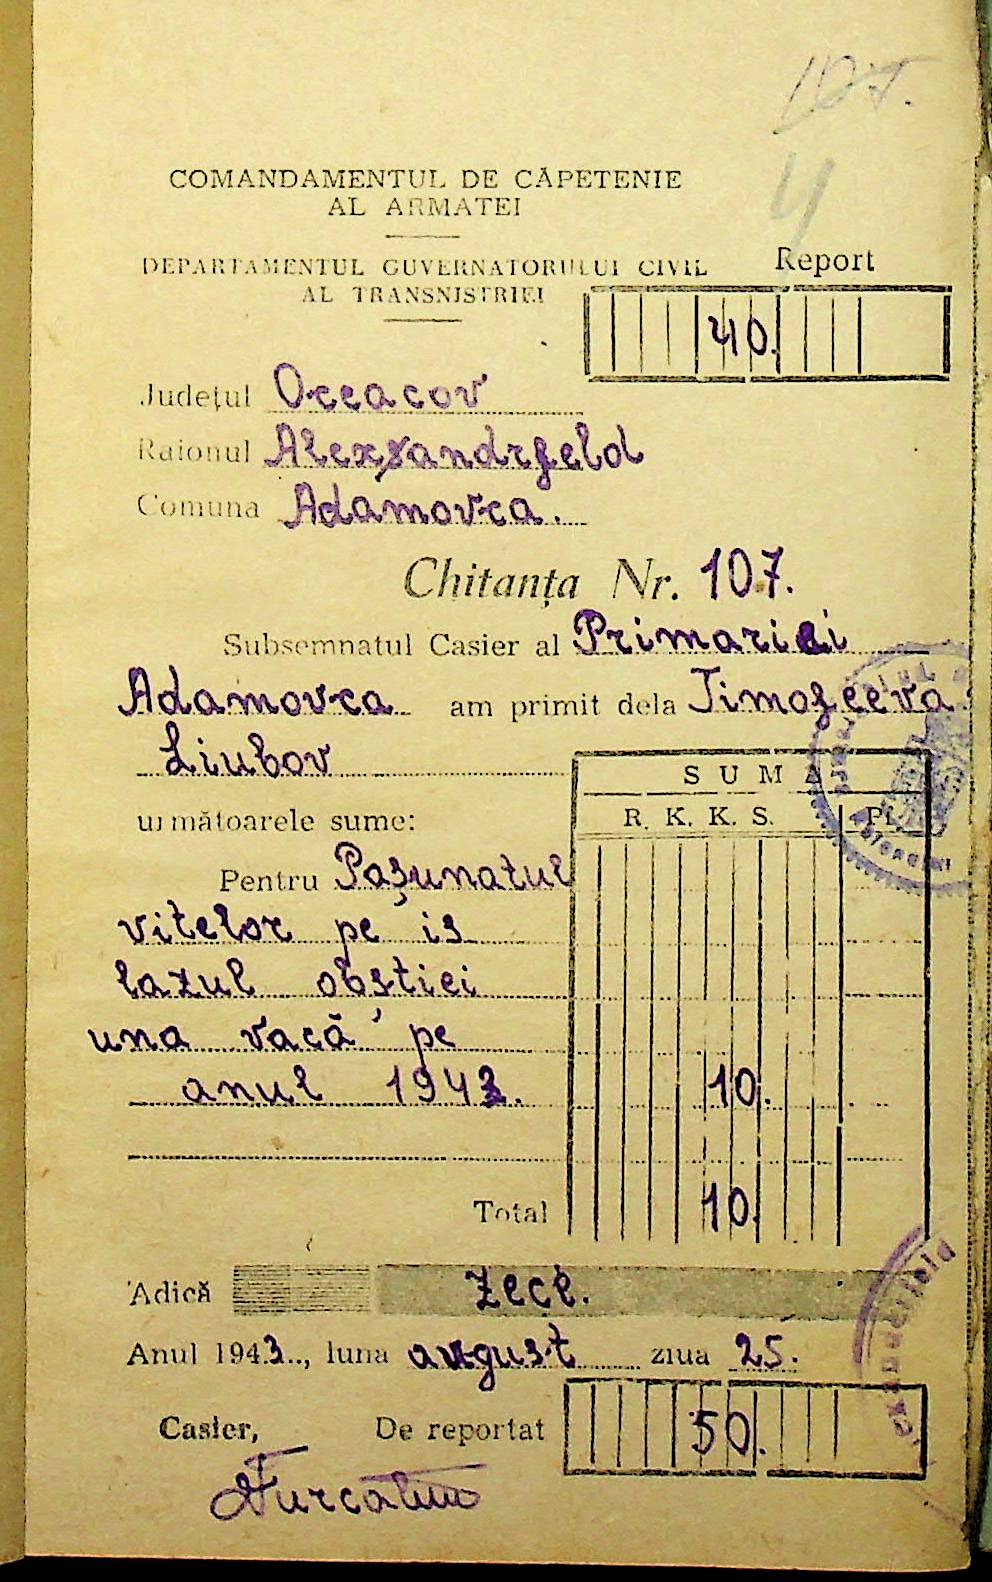 107.
4
COMANDAMENTUL DE CĂPETENIE
AL ARMATEI
DEPARTAMENTUL GUVERNATORULUI CIVIL
AL TRANSNISTRIEI
Report
40.
Județul Oceacov
Raionul Alexsandrfeld
Comuna Adamovca.
Chitanța Nr. 107.
Subsemnatul Casier al Primariei
Adamovca am primit dela Timofeeva
Liubov
SUMA
R. K. K. S. Pf.
următoarele sume:
Pentru Pașunatul
vitelor pe is
lazul obstiei
una vacă pe
anul 1943. 10.
Total 10.
Adică zece.
Anul 1943., luna avgust ziua 25.
Casier, De reportat 50.